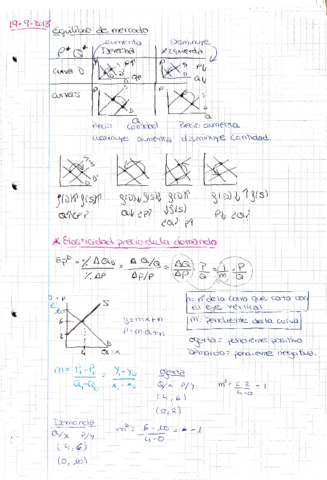 19-9-2013
Equilibrio de mercado
P* Q*
aumenta
Derecha
Disminuye
Izquierda
curva D
P↑
Q↑
P↓
Q↓
curva S
Precio cantidad
disminuye aumenta
Precio aumenta
disminuye cantidad.
f(D)↑ f(S)↑
Q↑ ¿P?
f(D)↓ f(S)↓
Q↓ ¿P?
f(D)↑
↓f(S)
¿Q? P↑
f(D)↓ ↑f(S)
P↓ ¿Q?
* Elasticidad precio de la demanda
Ep^D = % ΔQD / % ΔP = ΔQ/Q / ΔP/P = ΔQ/ΔP · P/Q = 1/m · P/Q
n: nº de la curva que corta con el eje vertical
m: pendiente de la curva
oferta = pendiente positiva
Demanda = pendiente negativa.
S
D
6
4
Q = x
y = mx + n
P = mQ + n
m = P1 - P0 / Q1 - Q0 = y1 - y0 / x1 - x0
oferta
Q/x P/y
(4, 6)
(0, 2)
m^s = 6-2 / 4-0 = 1
Demanda
Q/x P/y
(4, 6)
(0, 10)
m^D = 6 - 10 / 4-0 = -1